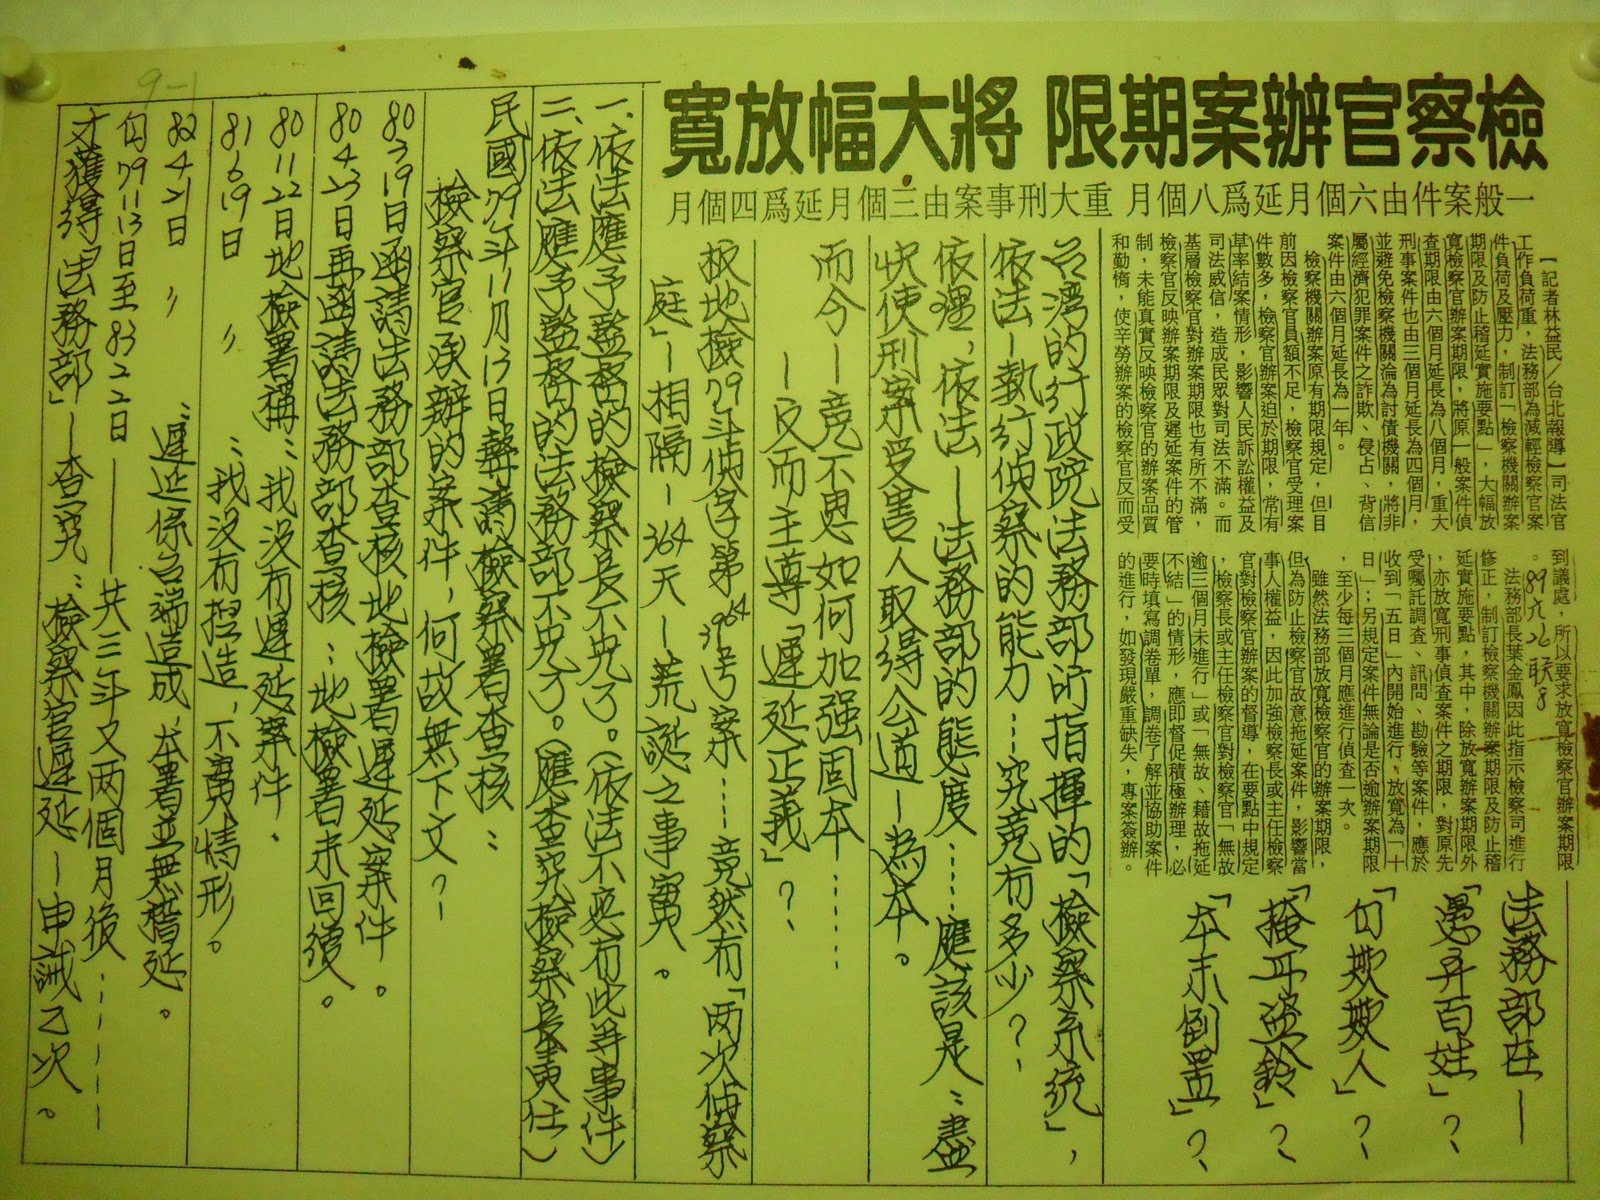 檢察官辦案期限 將大幅放寬
一般案件由六個月延爲八個月 重大刑事案由三個月延爲四個月
【記者林益民／台北報導】司法官
工作負荷重，法務部為減輕檢察官案
件負荷及壓力，制訂「檢察機關辦案
期限及防止稽延實施要點」，大幅放
寬檢察官辦案期限，將原一般案件偵
查期限由六個月延長為八個月，重大
刑事案件也由三個月延長為四個月，
並避免檢察機關淪為討債機關，將非
屬經濟犯罪案件之詐欺、侵占、背信
案件由六個月延長為一年。
檢察機關辦案原有期限規定，但目
前因檢察官員額不足，檢察官受理案
件數多，檢察官辦案迫於期限，常有
草率結案情形，影響人民訴訟權益及
司法威信，造成民眾對司法不滿。而
基層檢察官對辦案期限也有所不滿，
檢察官反映辦案期限及遲延案件的管
制，未能真實反映檢察官的辦案品質
和勤惰，使辛勞辦案的檢察官反而受
到議處，所以要求放寬檢察官辦案期限
。
法務部長葉金鳳因此指示檢察司進行
修正，制訂檢察機關辦案期限及防止稽
延實施要點，其中，除放寬辦案期限外
，亦放寬刑事偵查案件之期限，對原先
受囑託調查、訊問、勘驗等案件，應於
收到「五日」內開始進行，放寬為「十
日」；另規定案件無論是否逾辦案期限
，至少每三個月應進行偵查一次。
雖然法務部放寬檢察官的辦案期限，
但為防止檢察官故意拖延案件，影響當
事人權益，因此加強檢察長或主任檢察
官對檢察官辦案的督導，在要點中規定
，檢察長或主任檢察官對檢察官「無故
逾三個月未進行」或「無故、藉故拖延
不結」的情形，應即督促積極辦理，必
要時填寫調卷單，調卷了解並協助案件
的進行，如發現嚴重缺失，專案簽辦。
89.九.26 联8
法務部在—
「愚弄百姓」？
「自欺欺人」？
「掩耳盜鈴」？
「本末倒置」？
台湾的行政院法務部所指揮的「檢察系統」，
依法—執行偵察的能力……究竟有多少？
依理，依法——法務部的態度……應該是：盡
快使刑案受害人取得公道—為本。
而今—竟不思如何加强固本……
—反而主導「遲延正義」？
板地檢79年偵字第3964號案……竟然有「两次偵察
庭」—相隔—364天—荒誕之事實。
一、依法應予監督的檢察長不見了。(依法不应有此等事件)
二、依法應予監督的法務部不見了。(應查究檢察長責任)
民國79年11月13日聲請檢察署查核：
檢察官承辦的案件，何故無下文？
80 7 19日函請法務部查核地檢署遲延案件。
80 4 23日再函請法務部查核：地檢署未回復。
80 11 22日地檢署稱：我沒有遲延案件。
81 6 19日 〃 ：我沒有捏造，不實情形。
82 4 21日 〃 ：遲延係台端造成，本署並無稽延。
自79 11 13日至83 2 2日——共三年又两個月後……
才獲得「法務部」—查究：檢察官遲延—申誡乙次。
9-1